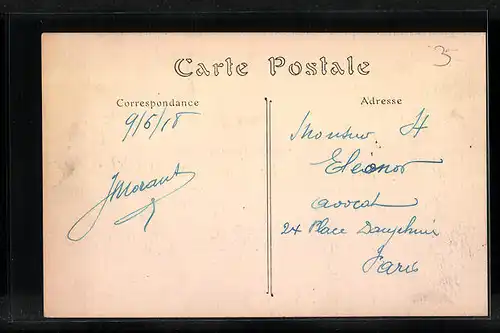 3
Carte Postale
Correspondance
9/6/18
JMorant
Adresse
Monsieur H
Eléonor
avocat
24 Place Dauphine
Paris